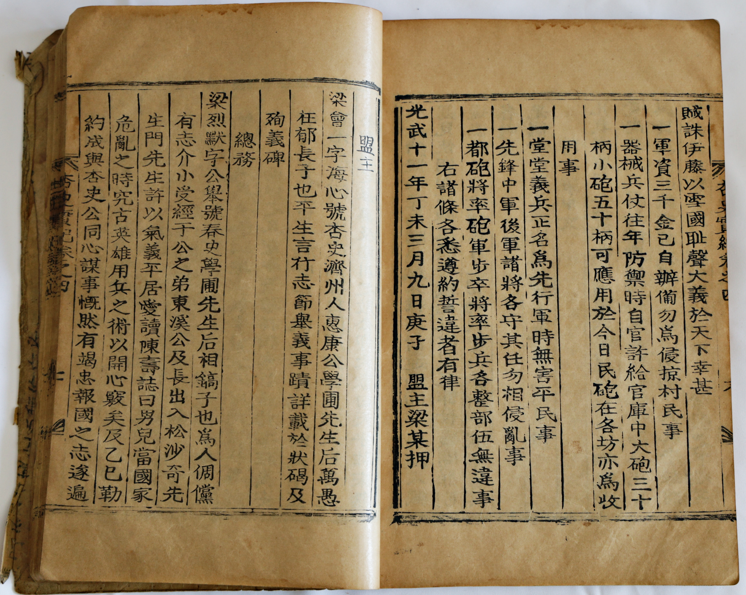 賊誅伊藤以雪國耻聲大義於天下幸甚
一軍資三千金已自辦備勿爲侵掠村民事
一器械兵仗往年防禦時自官許給官庫中大砲三十
柄小砲五十柄可應用於今日民砲在各坊亦爲收
用事
一堂堂義兵正名爲先行軍時無害平民事
一先鋒中軍後軍諸將各守其任勿相侵亂事
一都砲將率砲軍步卒將率步兵各整部伍無違事
右諸條各悉遵約誓違者有律
光武十一年丁未三月九日庚子 盟主梁某押
盟主
梁會一字海心號杏史濟州人惠康公學圃先生后萬愚
枉郁長子也平生言行志節舉義事蹟詳載於狀碣及
殉義碑
總務
梁烈默字公舉號春史學圃先生后相鎬子也爲人倜儻
有志介小受經于公之弟東溪公及長出入松沙奇先
生門先生許以氣義平居愛讀陳壽誌曰男兒當國家
危亂之時究古英雄用兵之術以開心竅矣及乙巳勒
約成與杏史公同心謀事慨然有竭忠報國之志遂遍